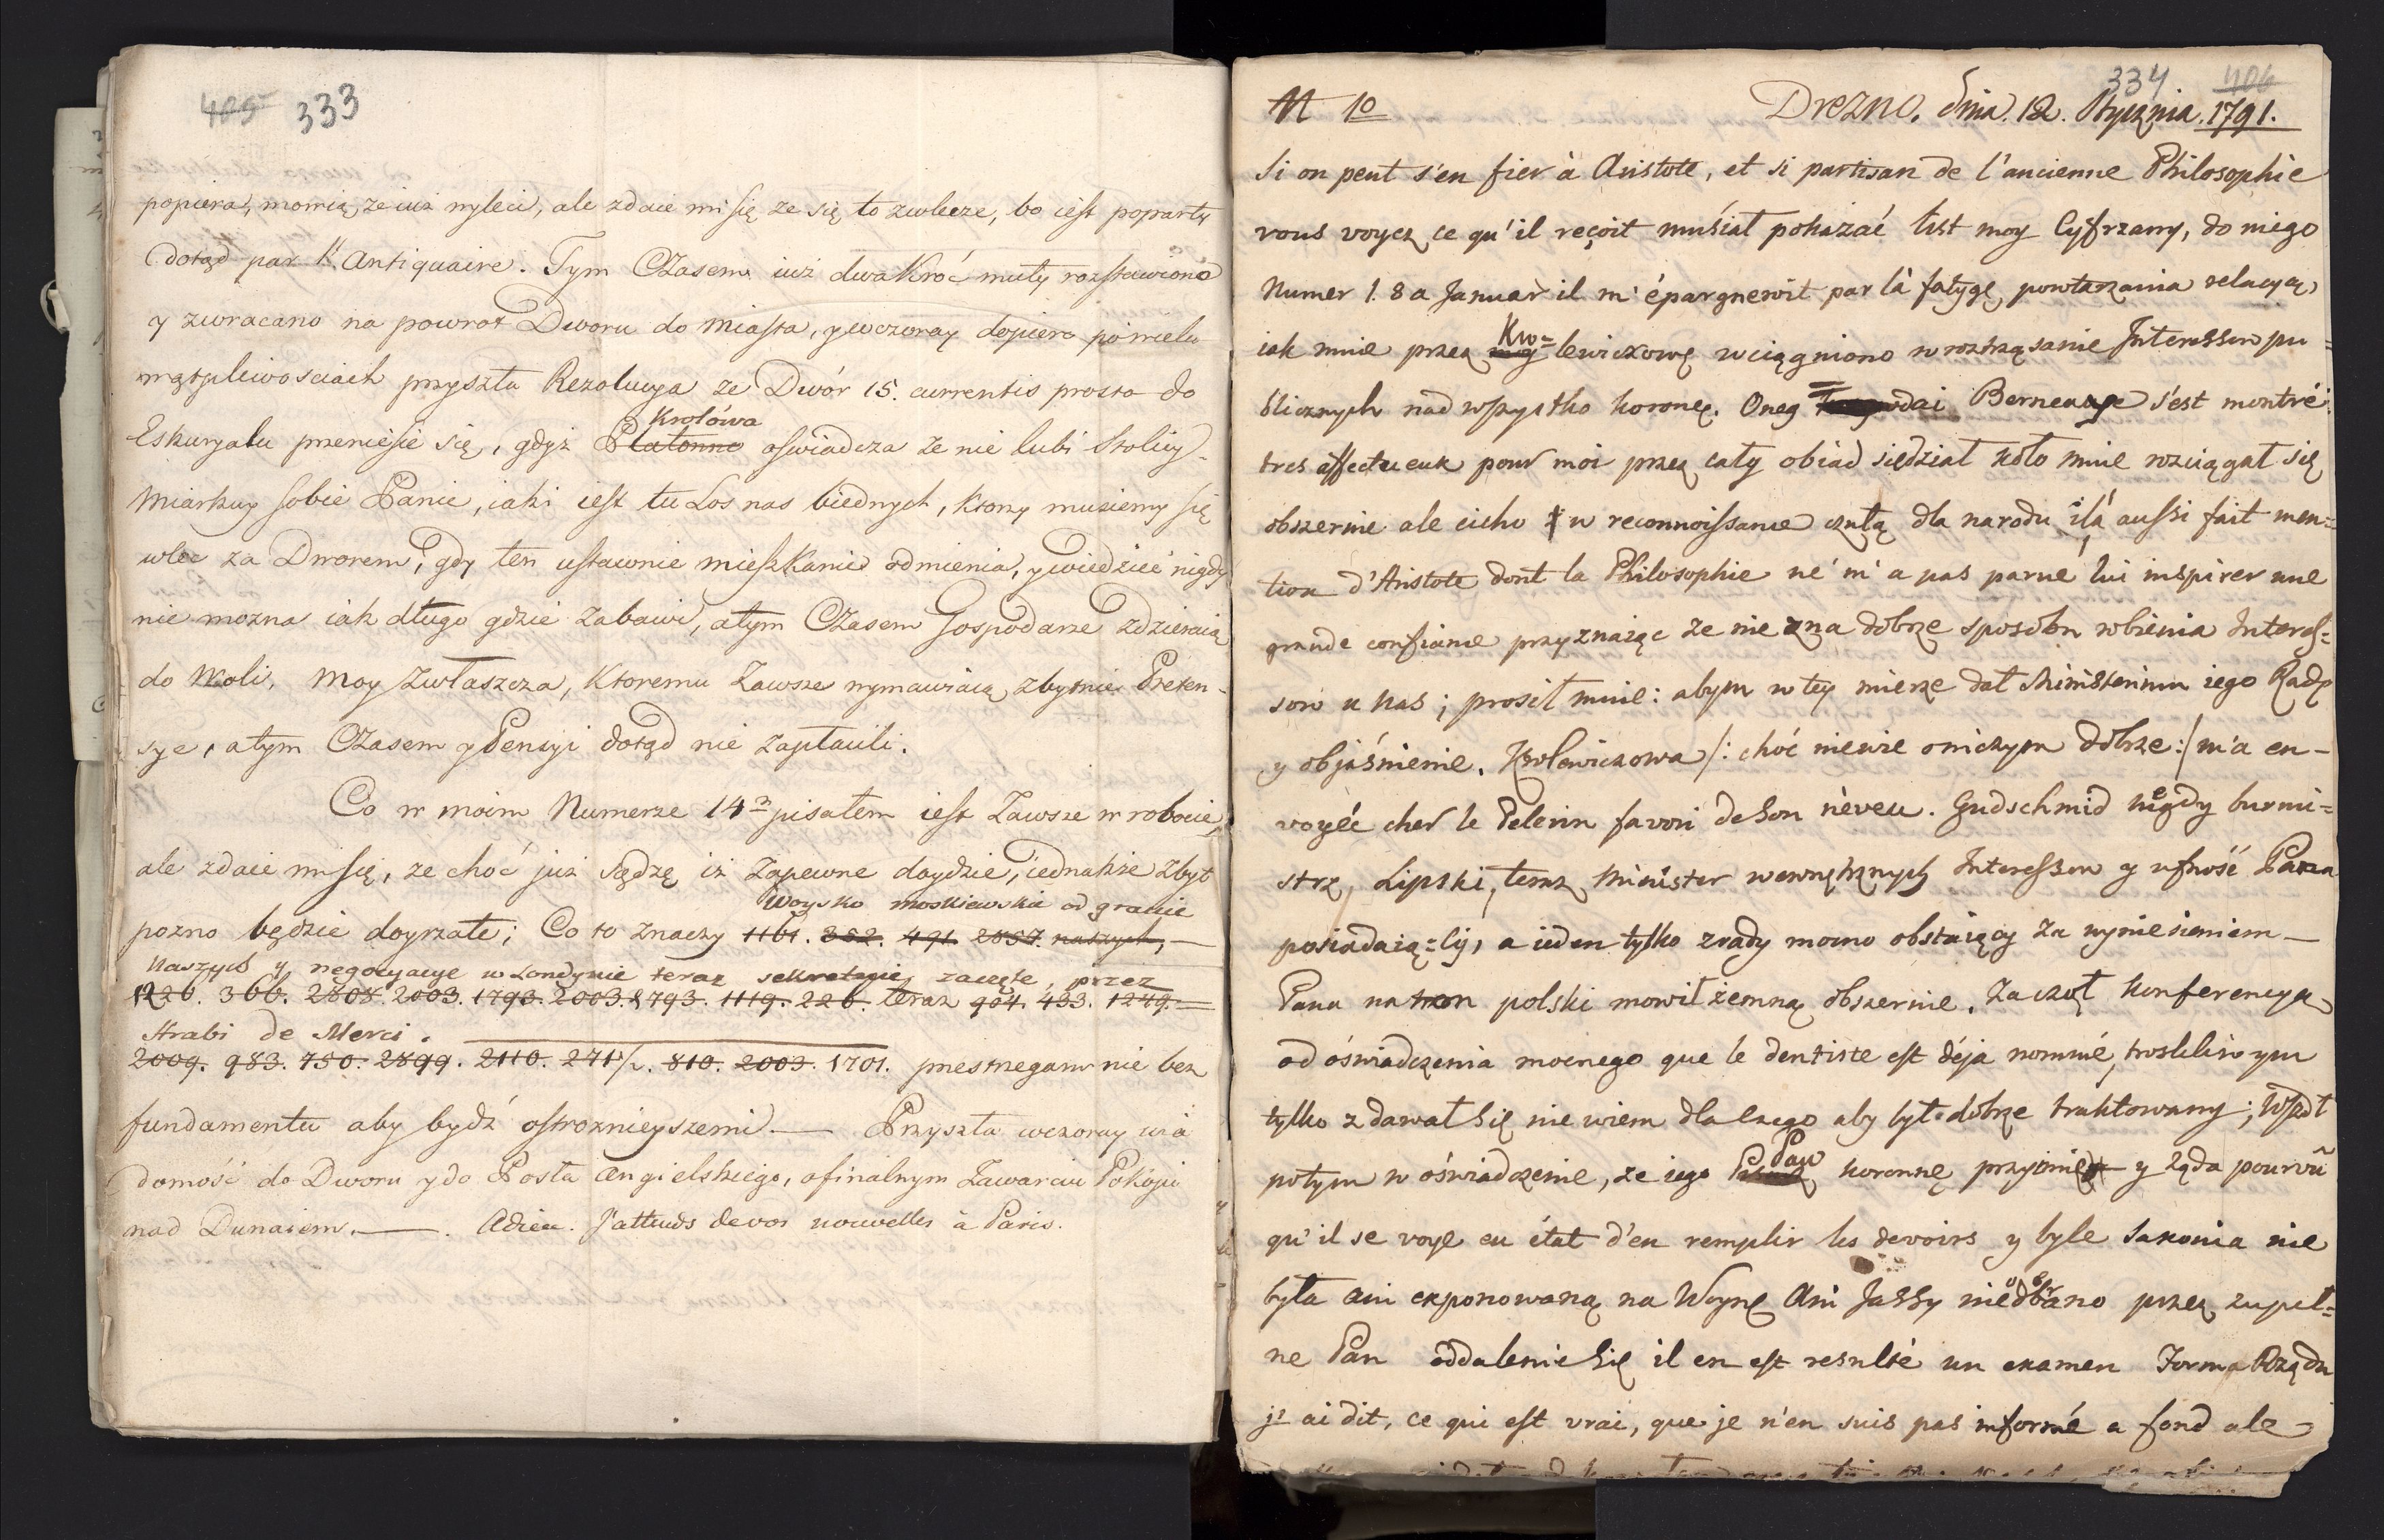 405 333
popiera, mowią, ze iuż wyleci, ale zdaie mi się ze się to zwlecze, bo iest poparty
dotąd par l'Antiquaire. Tym Czasem iuż dwa Kroć muły rozstawiono
y zwracano na powrot Dworu do Miasta, y wczoray dopiero po wielu
wątpliwosciach przyszła Rezolucya ze Dwór 15. currentis prosto do
Krolówa
Eskuryalu przeniesie się, gdyż Platonno oswiadcza ze nie lubi Stolicy.
Miarkuy sobie Panie, iaki iest tu Los nas biednych, Ktorzy musiemy się
wlec za Dworem, gdy ten ustawnie mieszkanie odmienia, y wiedzieć nigdy
nie mozna iak długo gdzie zabawi, a tym Czasem Gospodarze zdzieraią
do Woli, Moy zwłaszcza, Ktoremu Zawsze wymawiaią zbytnie Preten-
sye, a tym Czasem y Pensyi dotąd nie zapłacili.
Co w moim Numerze 14 pisałem iest Zawsze w robocie,
ale zdaie mi się, ze choć już sądzę iż zapewne doydzie, iednakże zbyt
Woysko moskiewskie od granic
pozno będzie doyrzałe; Co to znaczy 1161. 352. 491. 2857. naszych, —
Naszych y negocyacye w Londynie teraz sekretnie zaczęte, przez
1226. 366. 2808. 2003. 1793. 2003. 1793. 1119. 226. teraz 904. 433. 1249. =
Hrabi de Merci.
2009. 983. 750. 2899. 2110. 271/2. 810. 2003. 1701. przestrzegam nie bez
fundamentu aby bydź ostroznieyszemi. — Przyszła wczoray wia
domość do Dworu y do Posła Angielskiego, o finalnym Zawarciu Pokoju
nad Dunaiem. — . Adieu. J'attends de vos nouvelles à Paris.
334 406
N 10 Drezno. dnia. 12. Stycznia. 1791.
Si on peut s'en fier à Aristote, et si partisan de l'ancienne Philosophie
vous voyez ce qu'il reçoit musiał pokazać list moy Cyfrzany, do niego
Numer 1. 8a Januar il m'épargneroit par là fatygę powtarzania relacyą,
Kro=
iak mnie przez lewiczowę wciągniono w roztrząsanie Interessow pu=
blicznych nad wszystko koronę. Oneg dai Bernewge s'est montré
tres affectueux pour moi przez cały obiad siedział koło mnie rozciągał się
obszernie ale cicho w reconnoissance czułą dla narodu il a aussi fait men=
tion d'Aristote dont la Philosophie ne m'a pas parue lui inspirer une
grande confiance przyznaiąc ze nie zna dobrze sposobu robienia Interes=
sow u nas; prosił mnie: abym w tey mierze dał Ministerium iego Radę
y objaśnienie. Krolewiczowa /: choć niewie o niczym dobrze :/ m'a en-
voyée cher le Pelerin favori de son neveu. Gudschmid niegdy burmi=
strz, Lipski, teraz Minister wewnętrznych Interessow y ufność Pana
posiadaiący, a ieden tylko z rady mocno obstaiący za wyniesieniem —
Pana na tron polski mowił zemną obszernie. Zaczoł konferencyą
od oświadczenia mocnego que le dentiste est déja nommé, troskliwym
tylko zdawał się nie wiem dla czego aby był dobrze traktowany; Wszedł
Pan
potym w oświadczenie, ze iego koronnę przyimie y ząda pourvû
qu'il se voye en état d'en remplir les devoirs y byle Saxonia nie
była ani exponowaną na Woynę Ani Jassy niedbano przez zupeł=
ne Pan oddalenie się il en est resulté un examen Forma Rządu
j'ai dit, ce qui est vrai, que je n'en suis pas informé a fond ale